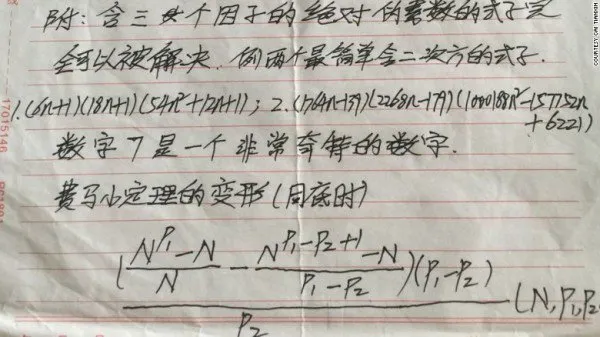 附：含三个因子的绝对伪素数的式子完
全可以被解决. 例两个最简单含二次方的式子.
1.(6n+1)(18n+1)(54n²+12n+1); 2.(1764n-139)(2268n-179)(1000188n²-157752n
+6221)
数字7是一个非常奇特的数字.
费马小定理的变形(同底时)
((N^P₁-N)/N - (N^(P₁-P₂+1)-N)/(P₁-P₂))(P₁-P₂)/P₂ (N,P₁,P₂
17015146
COURTESY CAI TIANXIN